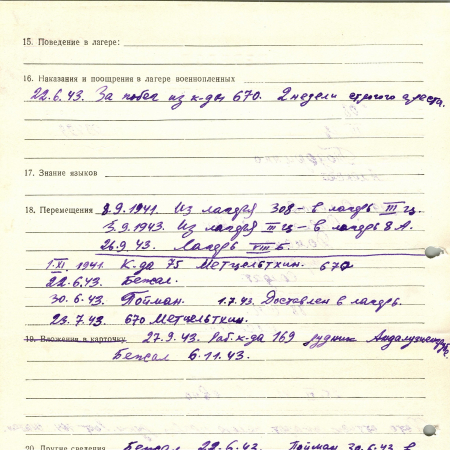 15. Поведение в лагере:
16. Наказания и поощрения в лагере военнопленных
22.6.43. За побег из к-ды 670. 2 недели строгого ареста.
17. Знание языков
18. Перемещения 8.9.1941. Из лагеря 308 - в лагерь III Ц.
5.9.1943. Из лагеря III Ц - в лагерь 8 А.
26.9.43. Лагерь VIII Б.
1.XI. 1941. К-да 75 Метцельтхин. 670
22.6.43. Бежал.
30.6.43. Пойман. 1.7.43. Доставлен в лагерь.
23.7.43. 670 Метцельтхин.
19. Вложения в карточку 27.9.43. Раб. к-да 169 рудник
Бежал 6.11.43.
20. Другие сведения Бежал 22.6.43. Пойман 30.6.43 в